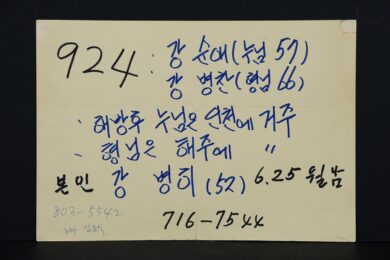 924 : 강 순애(누님 57)
강 병찬(형님 66)
、해방후 누님은 인천에 거주
、형님은 해주에 〃
본인 강 병희 (52) 6.25 월남
803-5542
716-7544